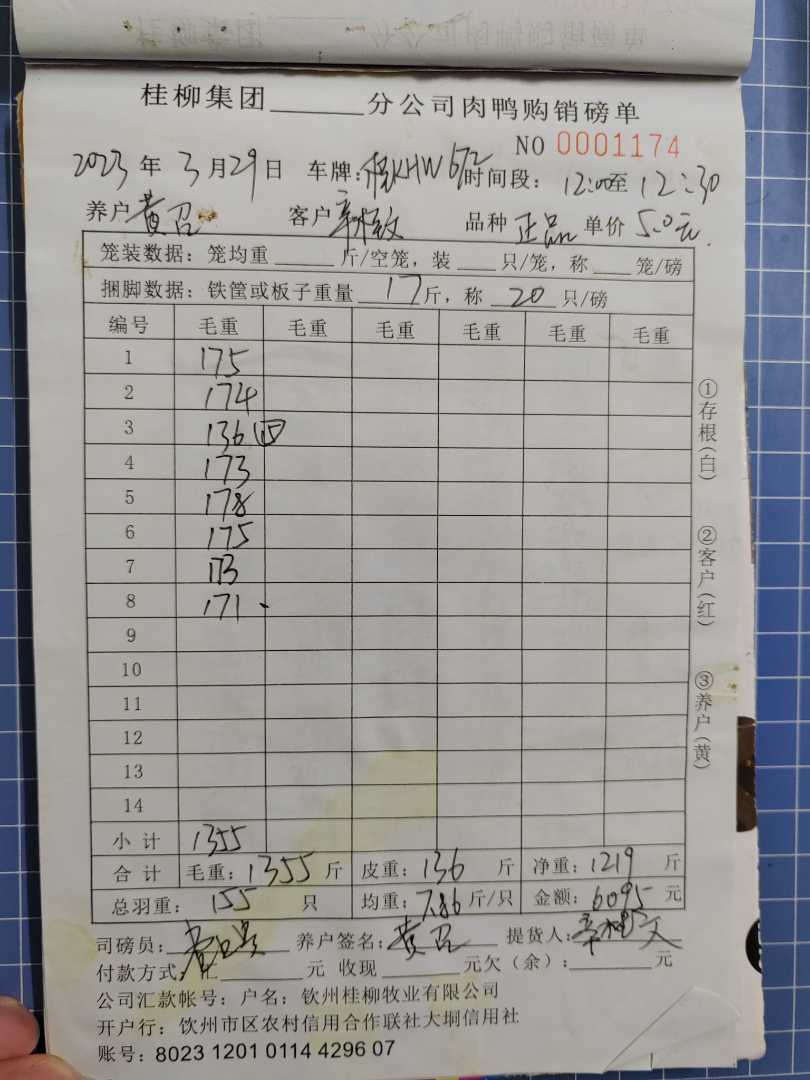 桂柳集团______分公司肉鸭购销磅单
NO 0001174
2023 年 3 月 29 日 车牌：桂KHW672 时间段：12:00至 12:30
养户 黄召 客户 品种 正品 单价 5.0元.
笼装数据：笼均重 ____ 斤/空笼，装 ___ 只/笼，称 ___ 笼/磅
捆脚数据：铁筐或板子重量 17 斤，称 20 只/磅
编号 毛重 毛重 毛重 毛重 毛重 毛重
1 175
2 174
3 136 (15)
4 173
5 178
6 175
7 173
8 171
9
10
11
12
13
14
小 计 1355
合 计 毛重：1355 斤 皮重：136 斤 净重：1219 斤
总羽重：155 只 均重：7.86 斤/只 金额：6095 元
司磅员： 养户签名：黄召 提货人：
付款方式：汇______元 收现______元欠（余）：______元
公司汇款帐号：户名：钦州桂柳牧业有限公司
开户行：钦州市区农村信用合作联社大垌信用社
账号：8023 1201 0114 4296 07
①存根（白）
②客户（红）
③养户（黄）